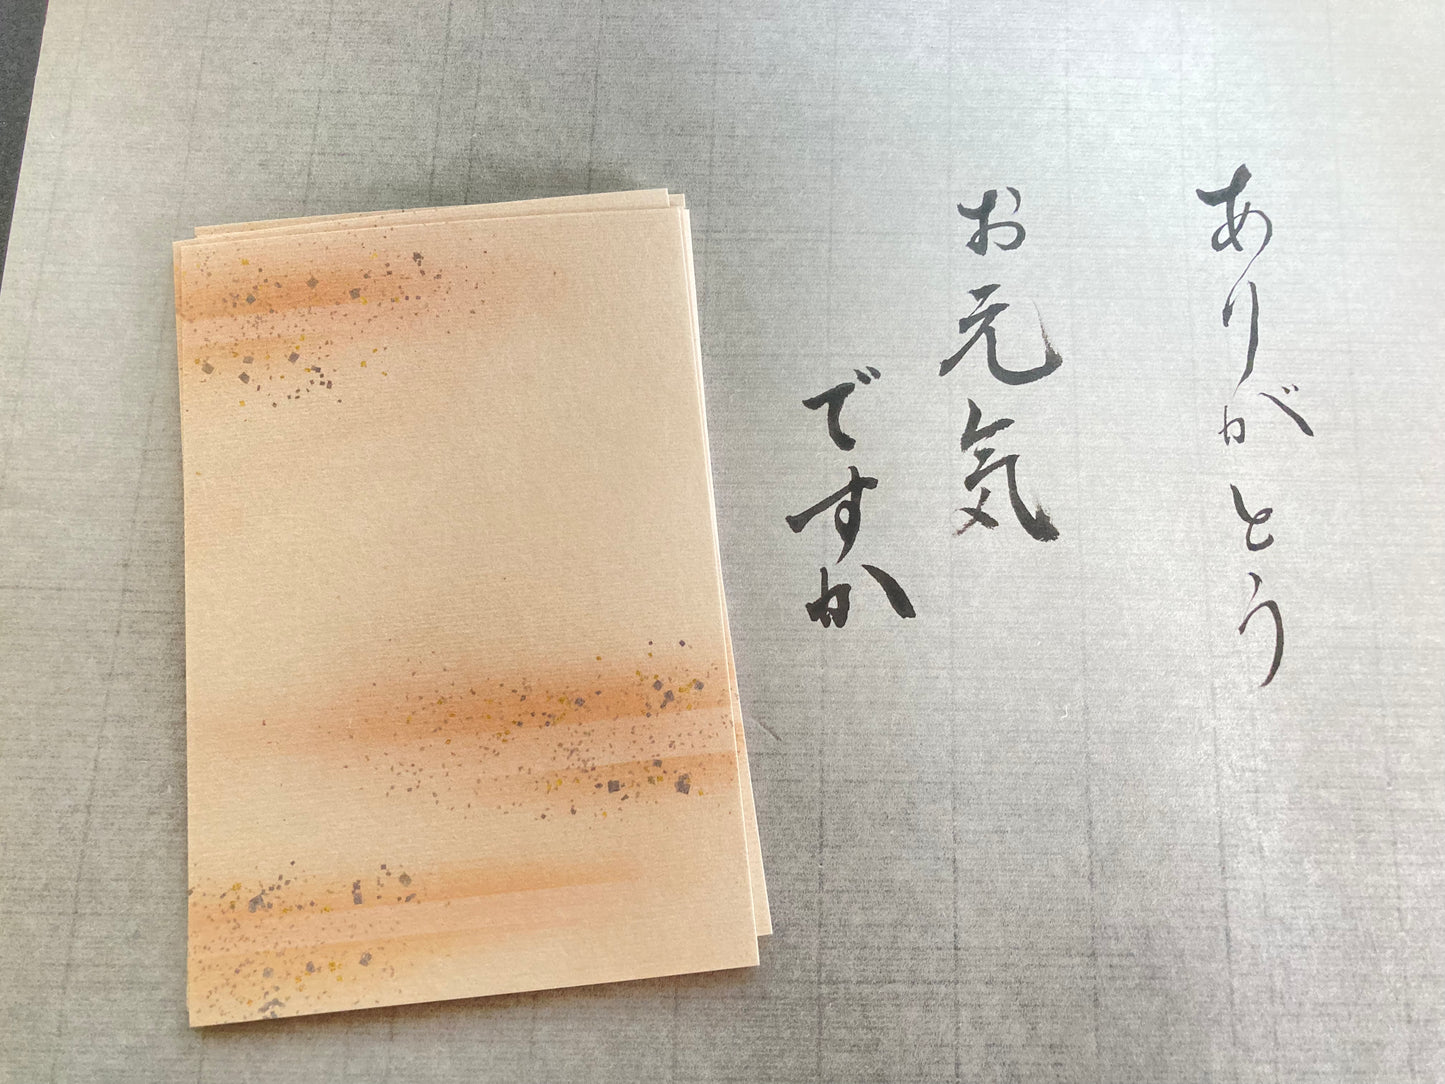 ありがとう
お元気
ですか